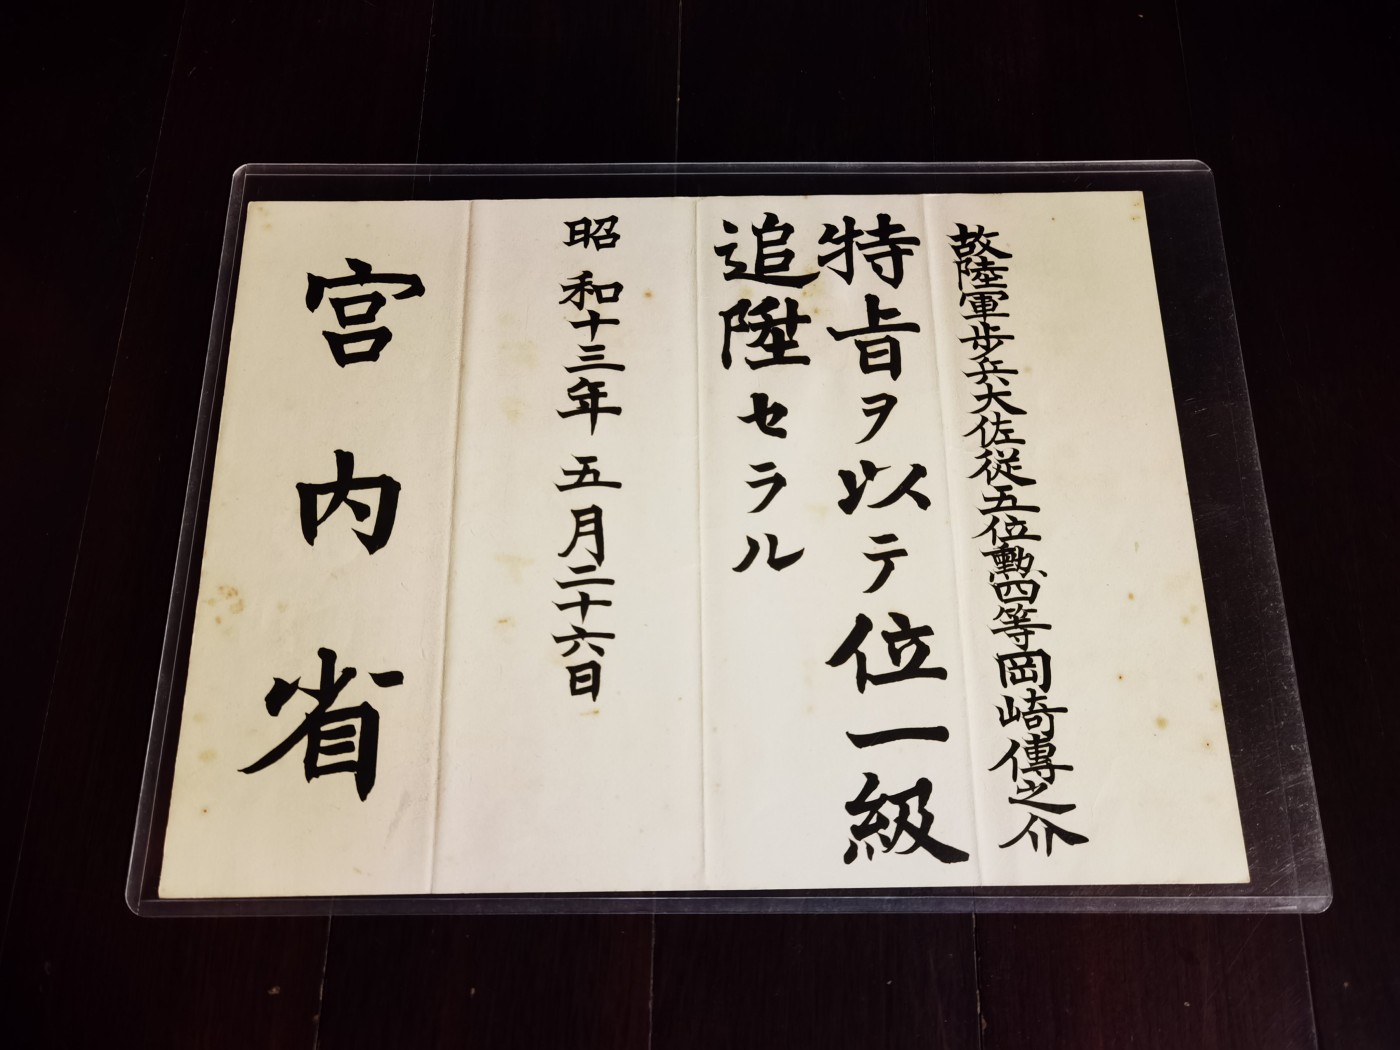 故陸軍歩兵大佐従五位勲四等岡崎傳之介
特旨ヲ以テ位一級
追陞セラル
昭和十三年五月二十六日
宮内省